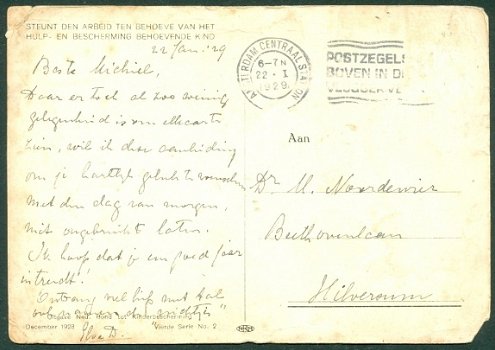 STEUNT DEN ARBEID TEN BEHOEVE VAN HET
HULP- EN BESCHERMING BEHOEVENDE KIND
22 Jan. '29
Beste Michiel,
Daar er toch al zoo weinig
gelegenheid is om elkaar te
zien, wil ik deze aanleiding
om je hartelijk geluk te wenschen
met den dag van morgen,
niet ongebruikt laten.
Ik hoop dat je een goed jaar
intreedt!
Ontvang
AMSTERDAM CENTRAAL STATION
6-7N
22 · I
1929
POSTZEGELS
BOVEN IN DE
Aan
Dr. M. Noordewier
Beethovenlaan
Hilversum
Uitgave Ned. Bond tot Kinderbescherming
December 1928
Vierde Serie No. 2